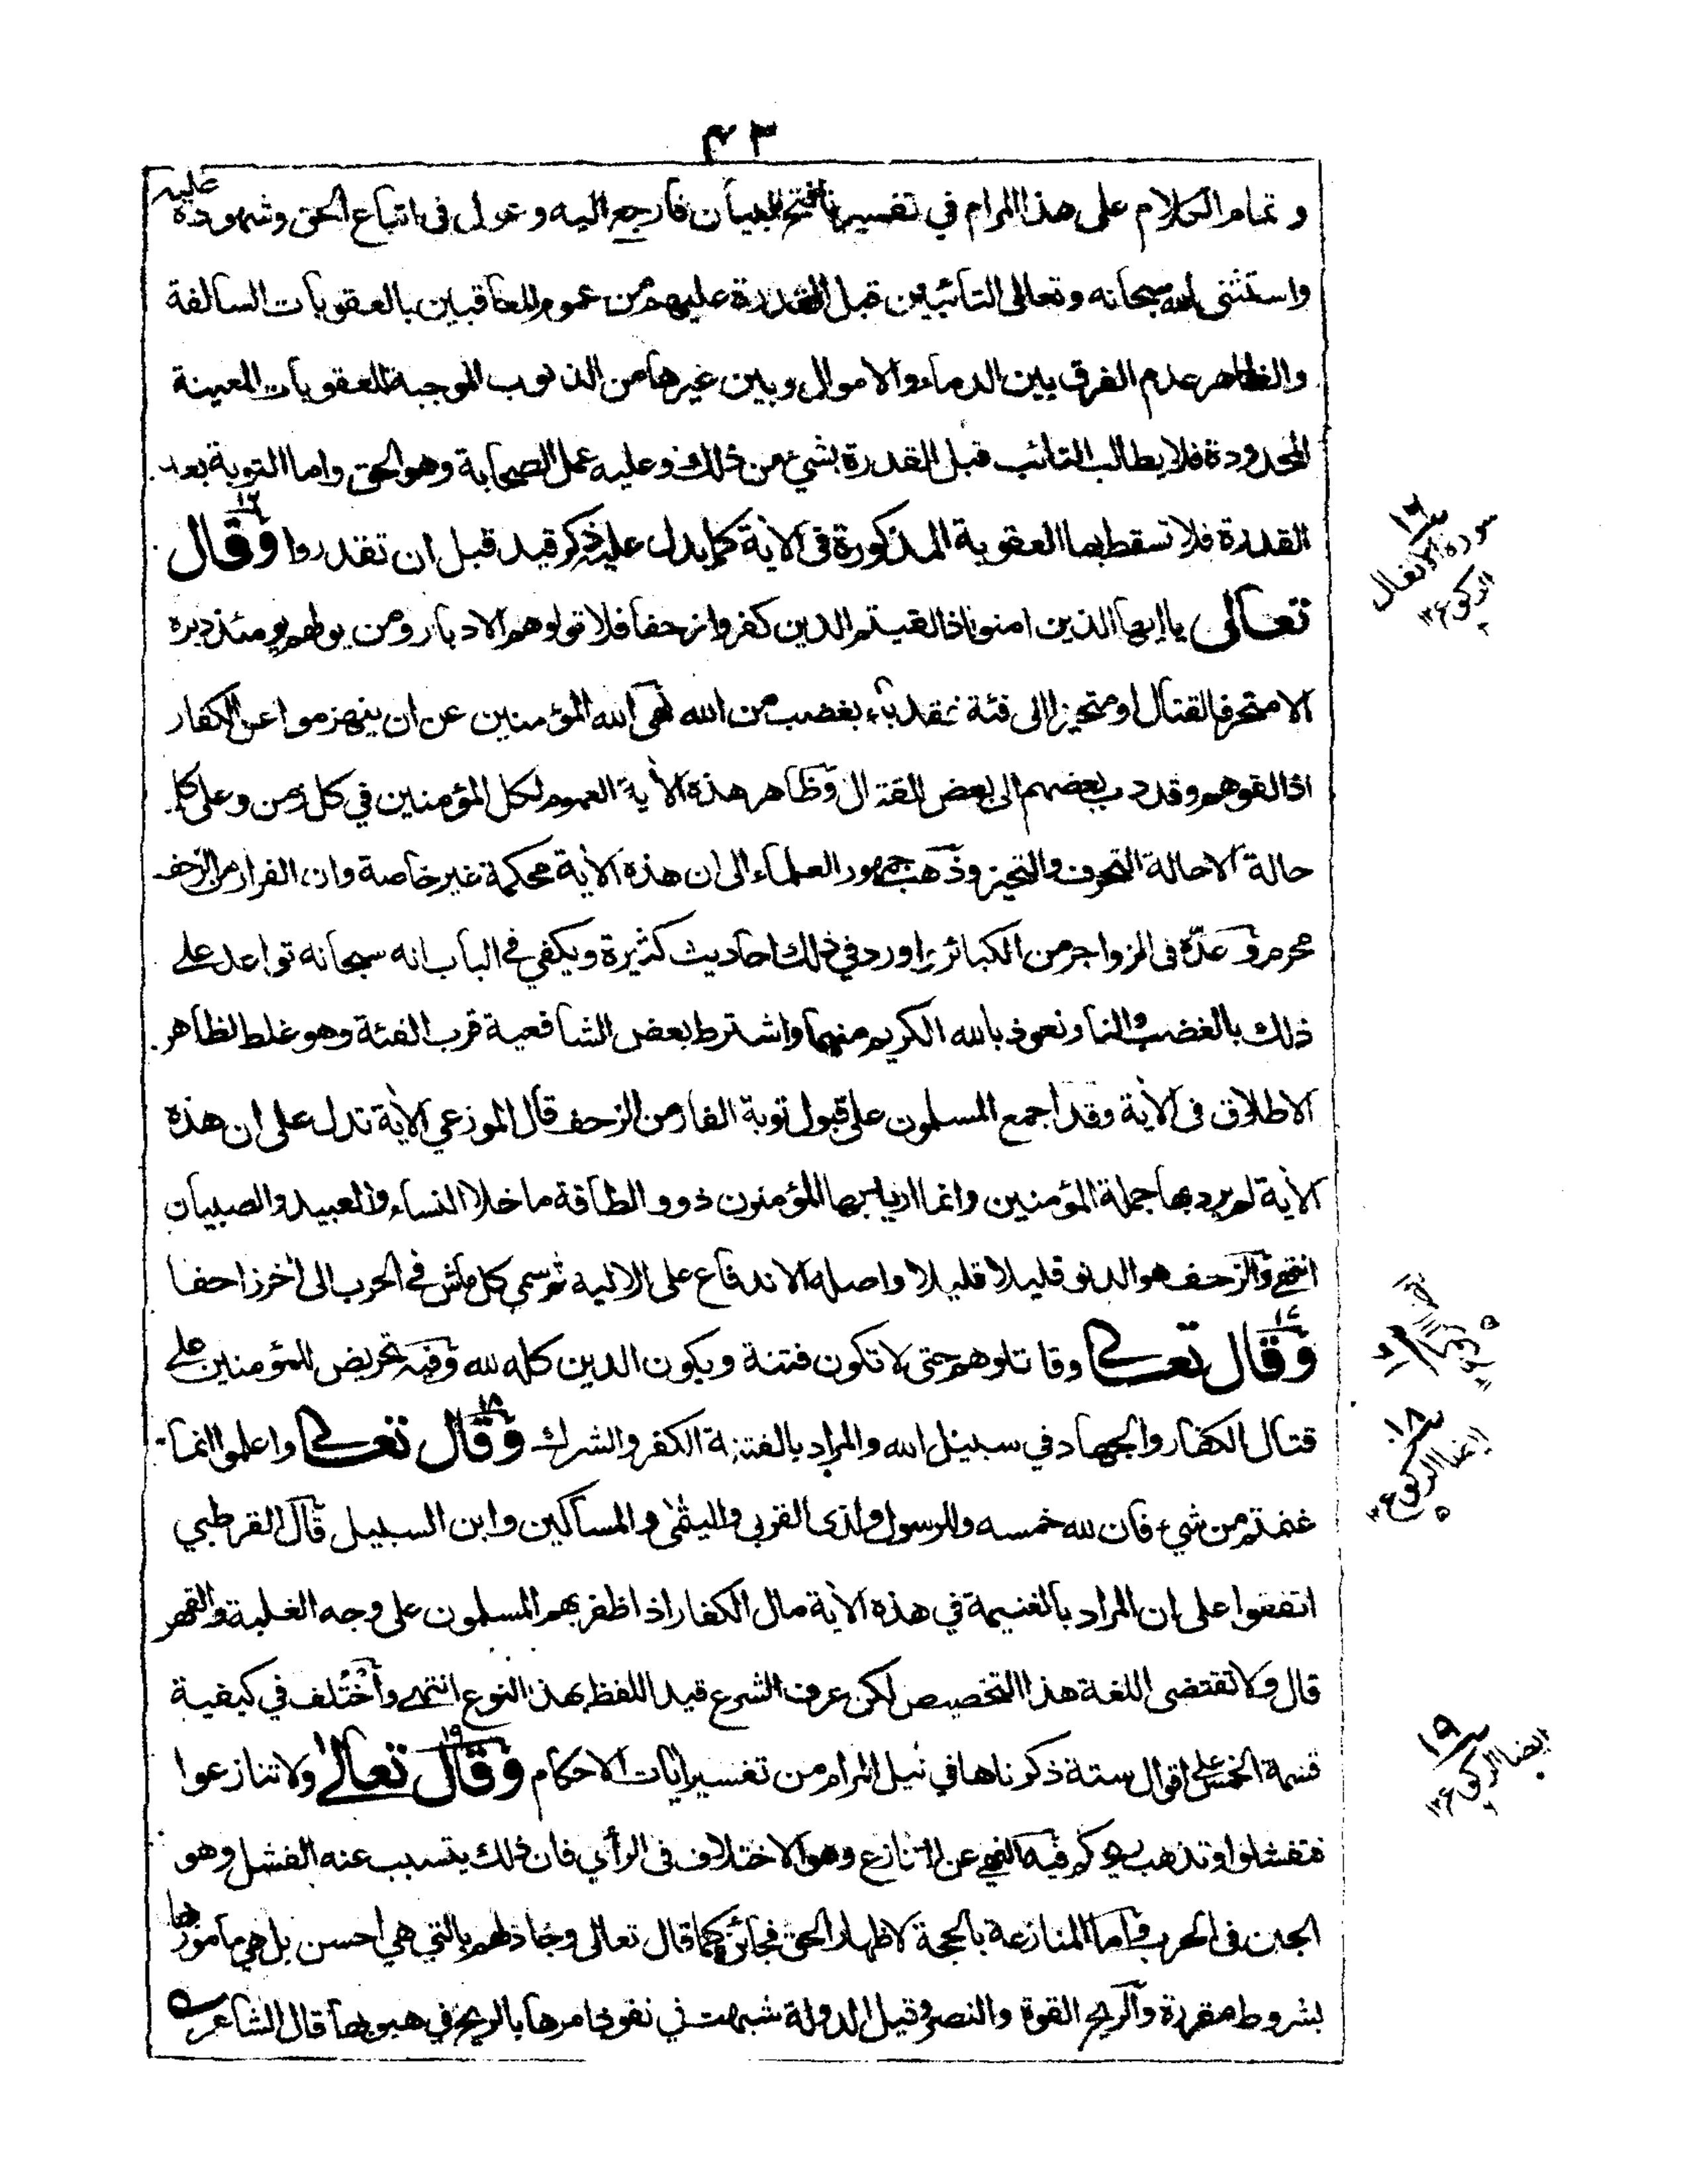 ٤٣
وتمام الكلام على هذا المرام في تفسيرنا فتح البيان فارجع اليه وعول في اتباع الحق وشهوده عليه
واستثنى الله سبحانه وتعالى التائبين قبل القدرة عليهم من عموم المعاقبين بالعقوبات السالفة
والظاهر عدم الفرق بين الدماء والاموال وبين غيرها من الذنوب الموجبة للعقوبات المعينة
المحدودة فلا يطالب التائب قبل القدرة بشئ من ذلك وعليه عمل الصحابة وهو الحق واما التوبة بعد
القدرة فلا تسقط بها العقوبة المذكورة في الآية كما يدل عليه ذكر قيد قبل ان تقدروا ١٦ وقال
تعالى يا ايها الذين امنوا اذا لقيتم الذين كفروا زحفا فلا تولوهم الادبار ومن يولهم يومئذ دبره
الا متحرفا لقتال او متحيزا الى فئة فقد باء بغضب من الله نهى الله المؤمنين عن ان ينهزموا عن الكفار
اذا لقوهم وقد دب بعضهم الى بعض للقتال وظاهر هذه الآية العموم لكل المؤمنين في كل زمن وعلى كل
حالة الا حالة التحرف والتحيز وذهب جمهور العلماء الى ان هذه الآية محكمة غير خاصة وان الفرار من الزحف
محرم وعده في الزواجر من الكبائر واورد في ذلك احاديث كثيرة ويكفي في الباب انه سبحانه تواعد على
ذلك بالغضب والنار ونعوذ بالله الكريم منهما واشترط بعض الشافعية قرب الفئة وهو غلط لظاهر
الاطلاق في الآية وقد اجمع المسلمون على قبول توبة الفار من الزحف قال الموزعي الآية تدل على ان هذه
الآية لم يرد بها جملة المؤمنين وانما اريد بها المؤمنون ذوو الطاقة ما خلا النساء والعبيد والصبيان
انتهى والزحف هو الدنو قليلا قليلا واصله الاندفاع على الالية ثم سمي كل ماش في الحرب الى آخر زاحفا
١٧ وقال تعالى وقاتلوهم حتى لا تكون فتنة ويكون الدين كله لله وفيه تحريض للمؤمنين على
قتال الكفار والجهاد في سبيل الله والمراد بالفتنة الكفر والشرك ١٨ وقال تعالى واعلموا انما
غنمتم من شئ فان لله خمسه وللرسول ولذى القربى واليتمى والمساكين وابن السبيل قال القرطبي
اتفقوا على ان المراد بالغنيمة في هذه الآية مال الكفار اذا ظفر بهم المسلمون على وجه الغلبة والقهر
قال ولا تقتضى اللغة هذا التخصيص لكن عرف الشرع قيد اللفظ بهذا النوع انتهى واختلف في كيفية
قسمة الخمس على اقوال ستة ذكرناها في نيل المرام من تفسير آيات الاحكام ١٩ وقال تعالى ولا تنازعوا
فتفشلوا وتذهب ريحكم فيه النهي عن التنازع وهو الاختلاف في الرأي فان ذلك يتسبب عنه الفشل وهو
الجبن في الحرب واما المنازعة بالحجة لاظهار الحق فجائز كما قال تعالى وجادلهم بالتي هي احسن بل هي مأمور بها
بشروط مقررة والريح القوة والنصر وقيل الدولة شبهت في نفوذ امرها بالريح في هبوبها قال الشاعر
١٦
سورة الانفال
الركوع ٢
١٨
ايضا الركوع
١٩
ايضا الركوع